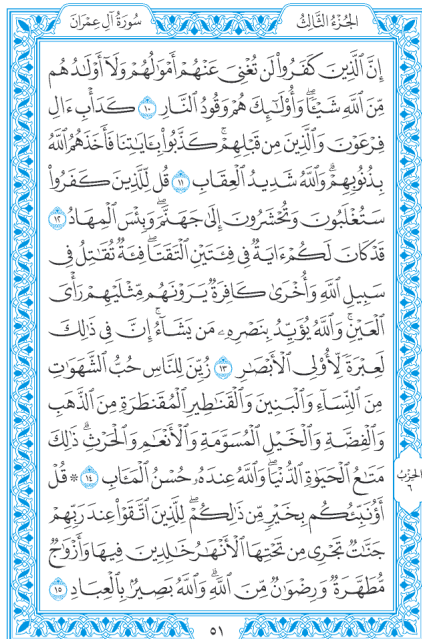 الجُزْءُ الثَّالِثُ
سُورَةُ آلِ عِمْرَانَ
إِنَّ ٱلَّذِينَ كَفَرُوا۟ لَن تُغْنِىَ عَنْهُمْ أَمْوَٰلُهُمْ وَلَآ أَوْلَٰدُهُم
مِّنَ ٱللَّهِ شَيْـًٔا ۖ وَأُو۟لَٰٓئِكَ هُمْ وَقُودُ ٱلنَّارِ ١٠ كَدَأْبِ ءَالِ
فِرْعَوْنَ وَٱلَّذِينَ مِن قَبْلِهِمْ ۚ كَذَّبُوا۟ بِـَٔايَٰتِنَا فَأَخَذَهُمُ ٱللَّهُ
بِذُنُوبِهِمْ ۗ وَٱللَّهُ شَدِيدُ ٱلْعِقَابِ ١١ قُل لِّلَّذِينَ كَفَرُوا۟
سَتُغْلَبُونَ وَتُحْشَرُونَ إِلَىٰ جَهَنَّمَ ۚ وَبِئْسَ ٱلْمِهَادُ ١٢
قَدْ كَانَ لَكُمْ ءَايَةٌ فِى فِئَتَيْنِ ٱلْتَقَتَا ۖ فِئَةٌ تُقَٰتِلُ فِى
سَبِيلِ ٱللَّهِ وَأُخْرَىٰ كَافِرَةٌ يَرَوْنَهُم مِّثْلَيْهِمْ رَأْىَ
ٱلْعَيْنِ ۚ وَٱللَّهُ يُؤَيِّدُ بِنَصْرِهِۦ مَن يَشَآءُ ۗ إِنَّ فِى ذَٰلِكَ
لَعِبْرَةً لِّأُو۟لِى ٱلْأَبْصَٰرِ ١٣ زُيِّنَ لِلنَّاسِ حُبُّ ٱلشَّهَوَٰتِ
مِنَ ٱلنِّسَآءِ وَٱلْبَنِينَ وَٱلْقَنَٰطِيرِ ٱلْمُقَنطَرَةِ مِنَ ٱلذَّهَبِ
وَٱلْفِضَّةِ وَٱلْخَيْلِ ٱلْمُسَوَّمَةِ وَٱلْأَنْعَٰمِ وَٱلْحَرْثِ ۗ ذَٰلِكَ
مَتَٰعُ ٱلْحَيَوٰةِ ٱلدُّنْيَا ۖ وَٱللَّهُ عِندَهُۥ حُسْنُ ٱلْمَـَٔابِ ١٤ ۞ قُلْ
أَؤُنَبِّئُكُم بِخَيْرٍ مِّن ذَٰلِكُمْ ۚ لِلَّذِينَ ٱتَّقَوْا۟ عِندَ رَبِّهِمْ
جَنَّٰتٌ تَجْرِى مِن تَحْتِهَا ٱلْأَنْهَٰرُ خَٰلِدِينَ فِيهَا وَأَزْوَٰجٌ
مُّطَهَّرَةٌ وَرِضْوَٰنٌ مِّنَ ٱللَّهِ ۗ وَٱللَّهُ بَصِيرٌۢ بِٱلْعِبَادِ ١٥
الحِزْبُ
٦
٥١